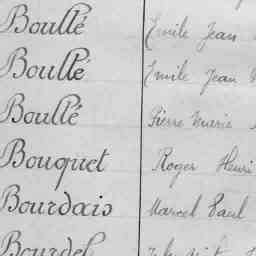 Boullé Emile Jean
Boullé Emile Jean
Boullé Pierre Marie
Bouquet Roger Henri
Bourdais Marcel Paul
Bourdel